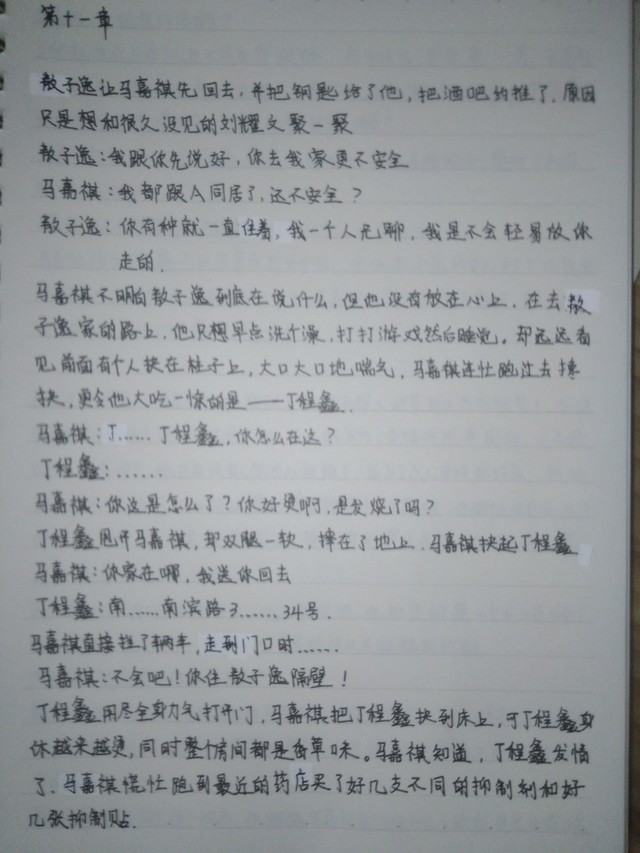 第十一章
敖子逸让马嘉祺先回去,并把钥匙给了他,把酒吧约推了,原因
只是想和很久没见的刘耀文聚一聚
敖子逸:我跟你先说好,你去我家更不安全
马嘉祺:我都跟A同居了,还不安全?
敖子逸:你有种就一直住着,我一个人无聊,我是不会轻易放你
走的.
马嘉祺不明白敖子逸到底在说什么,但他没有放在心上.在去敖
子逸家的路上,他只想早点洗个澡,打打游戏然后睡觉。却远远看
见前面有个人扶在柱子上,大口大口地喘气,马嘉祺连忙跑过去搀
扶,更令他大吃一惊的是——丁程鑫.
马嘉祺:丁……丁程鑫,你怎么在这?
丁程鑫:……
马嘉祺:你这是怎么了?你好烫啊,是发烧了吗?
丁程鑫甩开马嘉祺,却双腿一软,摔在了地上.马嘉祺扶起丁程鑫
马嘉祺:你家在哪,我送你回去
丁程鑫:南……南滨路3……34号.
马嘉祺直接拦了辆车,走到门口时……
马嘉祺:不会吧!你住敖子逸隔壁!
丁程鑫用尽全身力气打开门,马嘉祺把丁程鑫扶到床上,可丁程鑫身
体越来越烫,同时整个房间都是香草味。马嘉祺知道,丁程鑫发情
了.马嘉祺慌忙跑到最近的药店买了好几支不同的抑制剂和好
几张抑制贴.